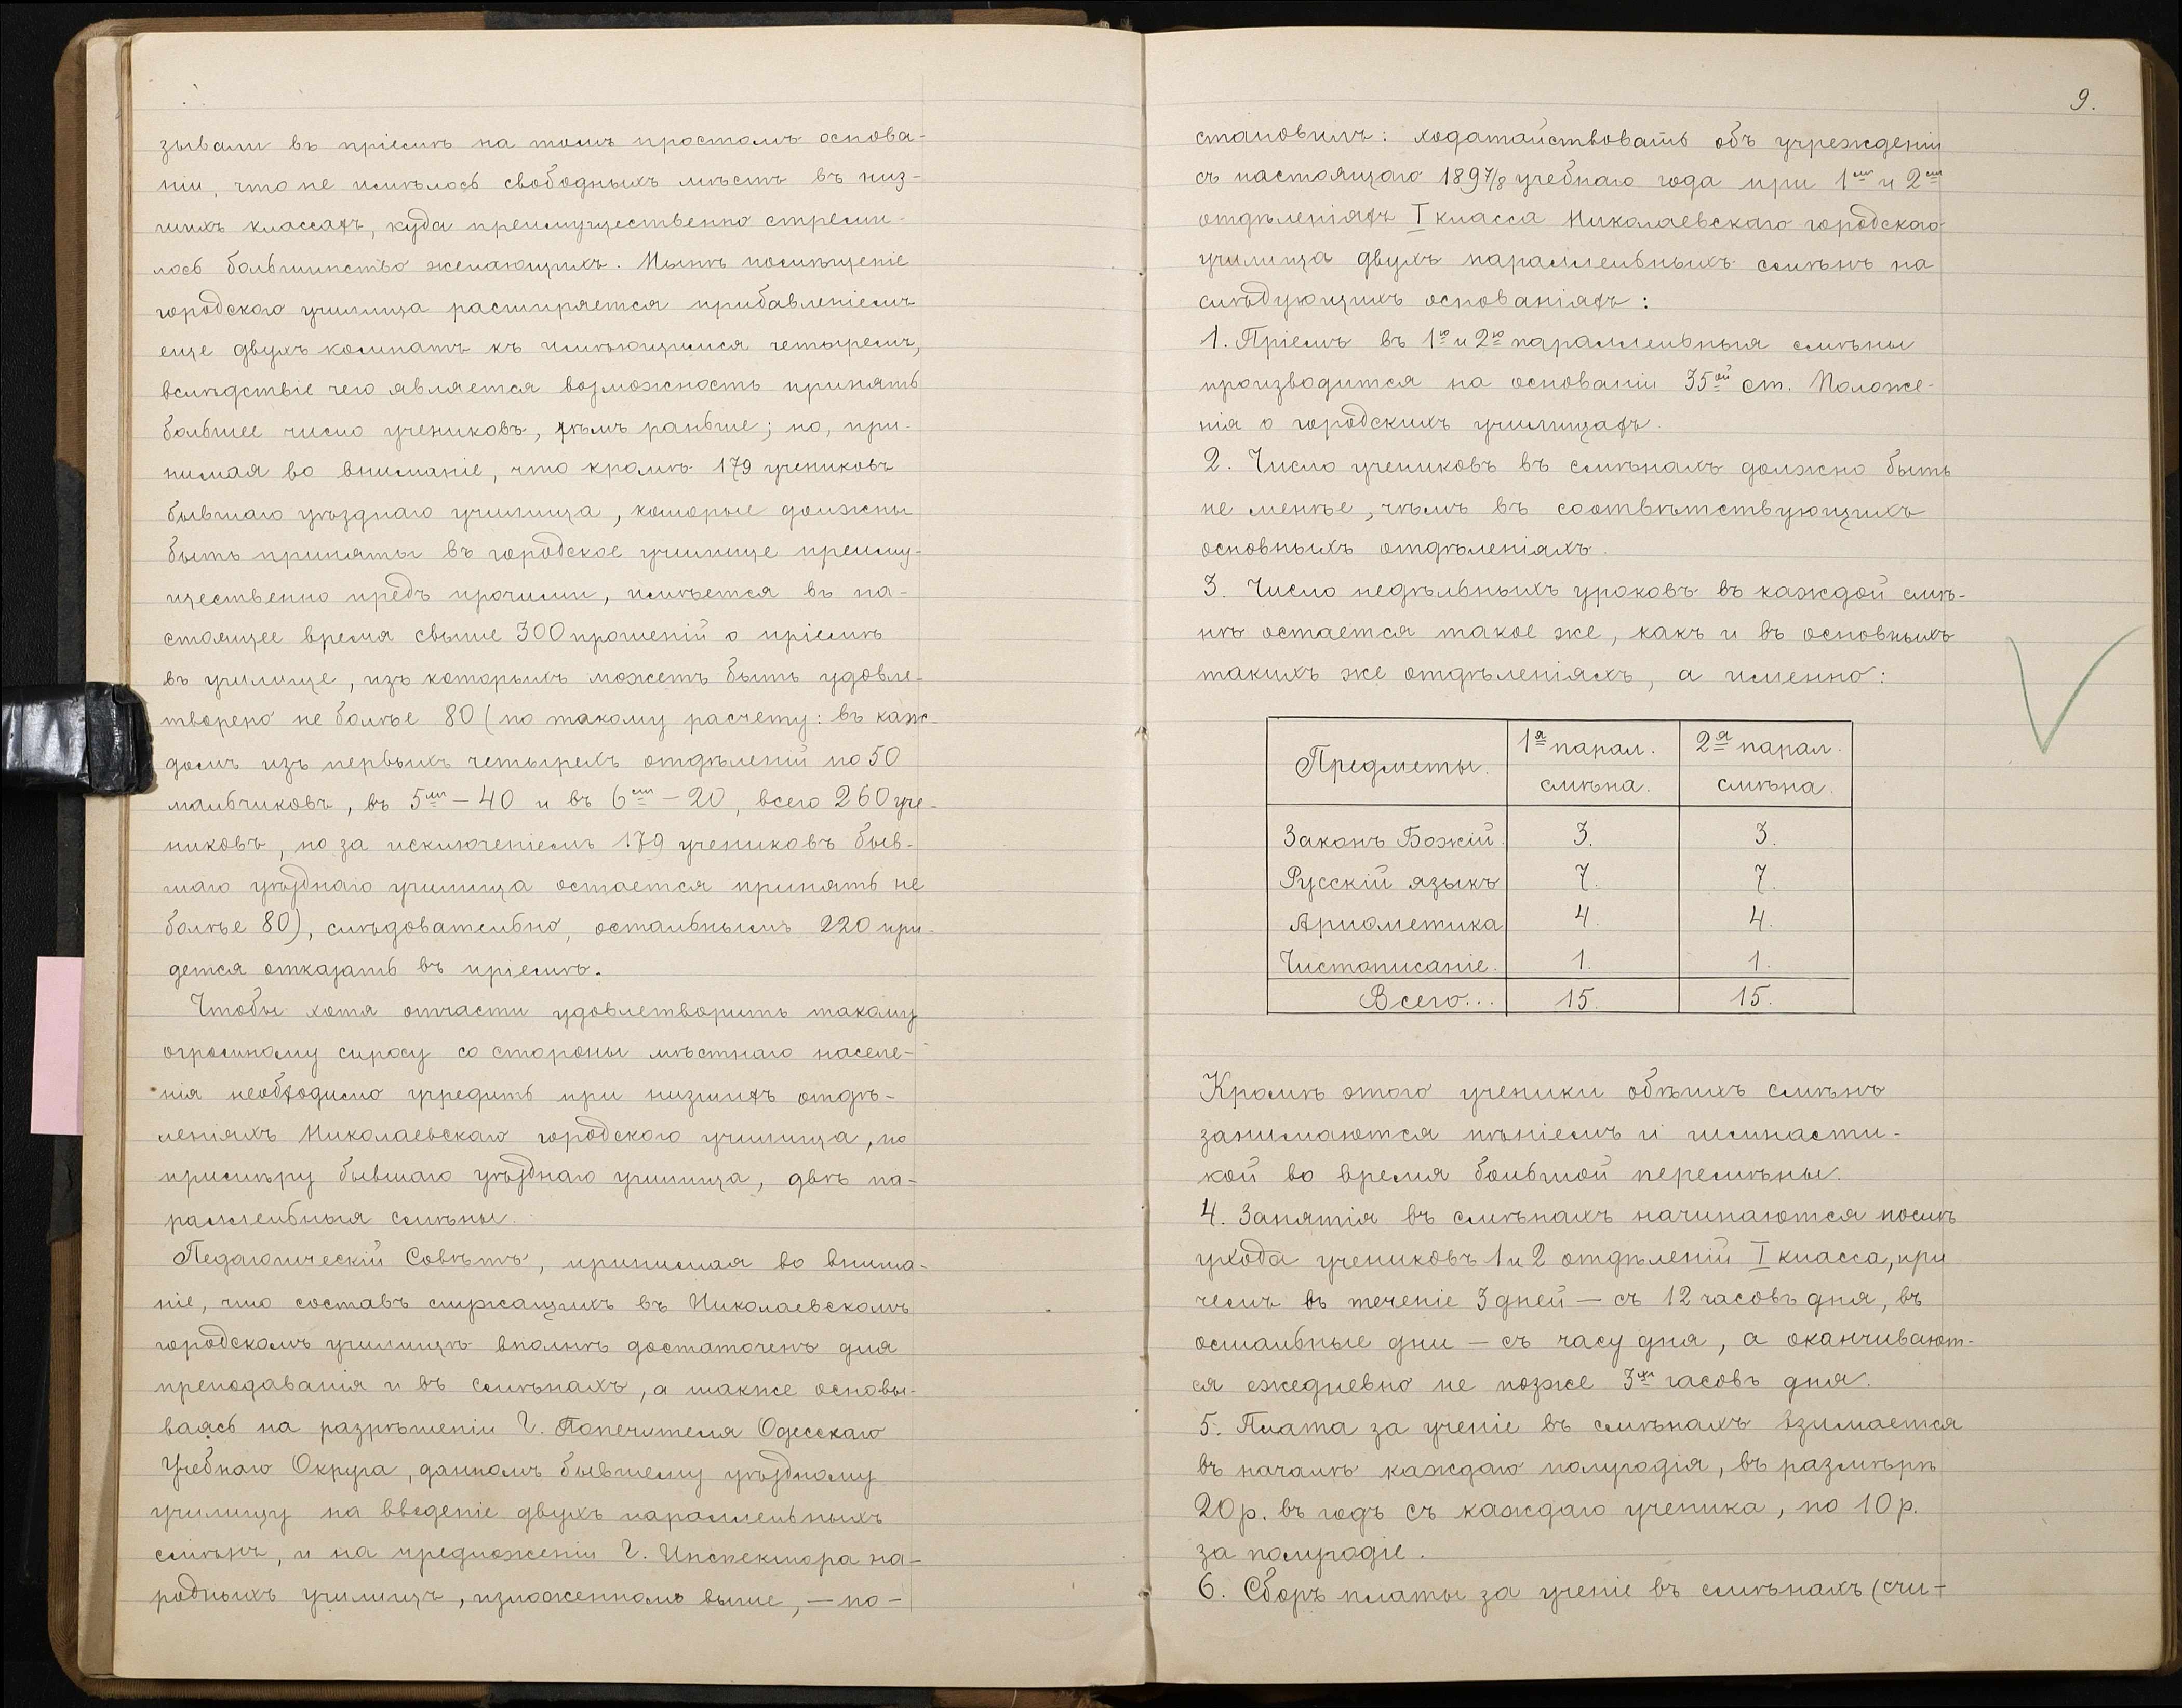 зывали въ пріемѣ на томъ простомъ основа-
ніи, что не имѣлось свободныхъ мѣстъ въ низ-
шихъ классахъ, куда преимущественно стреми-
лось большинство желающихъ. Нынѣ помѣщеніе
городского училища расширяется прибавленіемъ
еще двухъ комнатъ къ имѣющимся четыремъ,
вслѣдствіе чего является возможность принять
большее число учениковъ, чѣмъ раньше; но, при-
нимая во вниманіе, что кромѣ 179 учениковъ
бывшаго уѣзднаго училища, которые должны
быть приняты въ городское училище преиму-
щественно предъ прочими, имѣется въ на-
стоящее время свыше 300 прошеній о пріемѣ
въ училище, изъ которыхъ можетъ быть удовле-
творено не болѣе 80 (по такому расчету: въ каж-
домъ изъ первыхъ четырехъ отдѣленій по 50
мальчиковъ, въ 5мъ – 40 и въ 6мъ – 20, всего 260 уче-
никовъ, но за исключеніемъ 179 учениковъ быв-
шаго уѣзднаго училища остается принять не
болѣе 80), слѣдовательно, остальнымъ 220 при-
дется отказать въ пріемѣ.
Чтобы хотя отчасти удовлетворить такому
огромному спросу со стороны мѣстнаго населе-
нія необходимо учредить при низшихъ отдѣ-
леніяхъ Николаевскаго городского училища, по
примѣру бывшаго уѣзднаго училища, двѣ па-
раллельныя смѣны.
Педагогическій Совѣтъ, принимая во внима-
ніе, что составъ служащихъ въ Николаевскомъ
городскомъ училищѣ вполнѣ достаточенъ для
преподаванія и въ смѣнахъ, а также основы-
ваясь на разрѣшеніи Г. Попечителя Одесскаго
Учебнаго Округа, данномъ бывшему уѣздному
училищу на введеніе двухъ параллельныхъ
смѣнъ, и на предложеніи Г. Инспектора на-
родныхъ училищъ, изложенномъ выше, – по-
9.
становилъ: ходатайствовать объ учрежденіи
съ настоящаго 1897/8 учебнаго года при 1мъ и 2мъ
отдѣленіяхъ I класса Николаевскаго городскаго
училища двухъ параллельныхъ смѣнъ на
слѣдующихъ основаніяхъ:
1. Пріемъ въ 1ю и 2ю параллельныя смѣны
производится на основаніи 35ой ст. Положе-
нія о городскихъ училищахъ.
2. Число учениковъ въ смѣнахъ должно быть
не менѣе, чѣмъ въ соотвѣтствующихъ
основныхъ отдѣленіяхъ.
3. Число недѣльныхъ уроковъ въ каждой смѣ-
нѣ остается такое же, какъ и въ основныхъ
такихъ же отдѣленіяхъ, а именно:
Предметы. 1я парал. смѣна. 2я парал. смѣна.
Законъ Божій. 3. 3.
Русскій языкъ 7. 7.
Ариѳметика 4. 4.
Чистописаніе. 1. 1.
Всего... 15. 15.
Кромѣ этого ученики обѣихъ смѣнъ
занимаются пѣніемъ и гимнасти-
кой во время большой перемѣны.
4. Занятія въ смѣнахъ начинаются послѣ
ухода учениковъ 1 и 2 отдѣленій I класса, при
чемъ въ теченіе 3 дней – съ 12 часовъ дня, въ
остальные дни – съ часу дня, а оканчивают-
ся ежедневно не позже 3хъ часовъ дня.
5. Плата за ученіе въ смѣнахъ взимается
въ началѣ каждаго полугодія, въ размѣрѣ
20 р. въ годъ съ каждаго ученика, по 10 р.
за полугодіе.
6. Сборъ платы за ученіе въ смѣнахъ (счи-